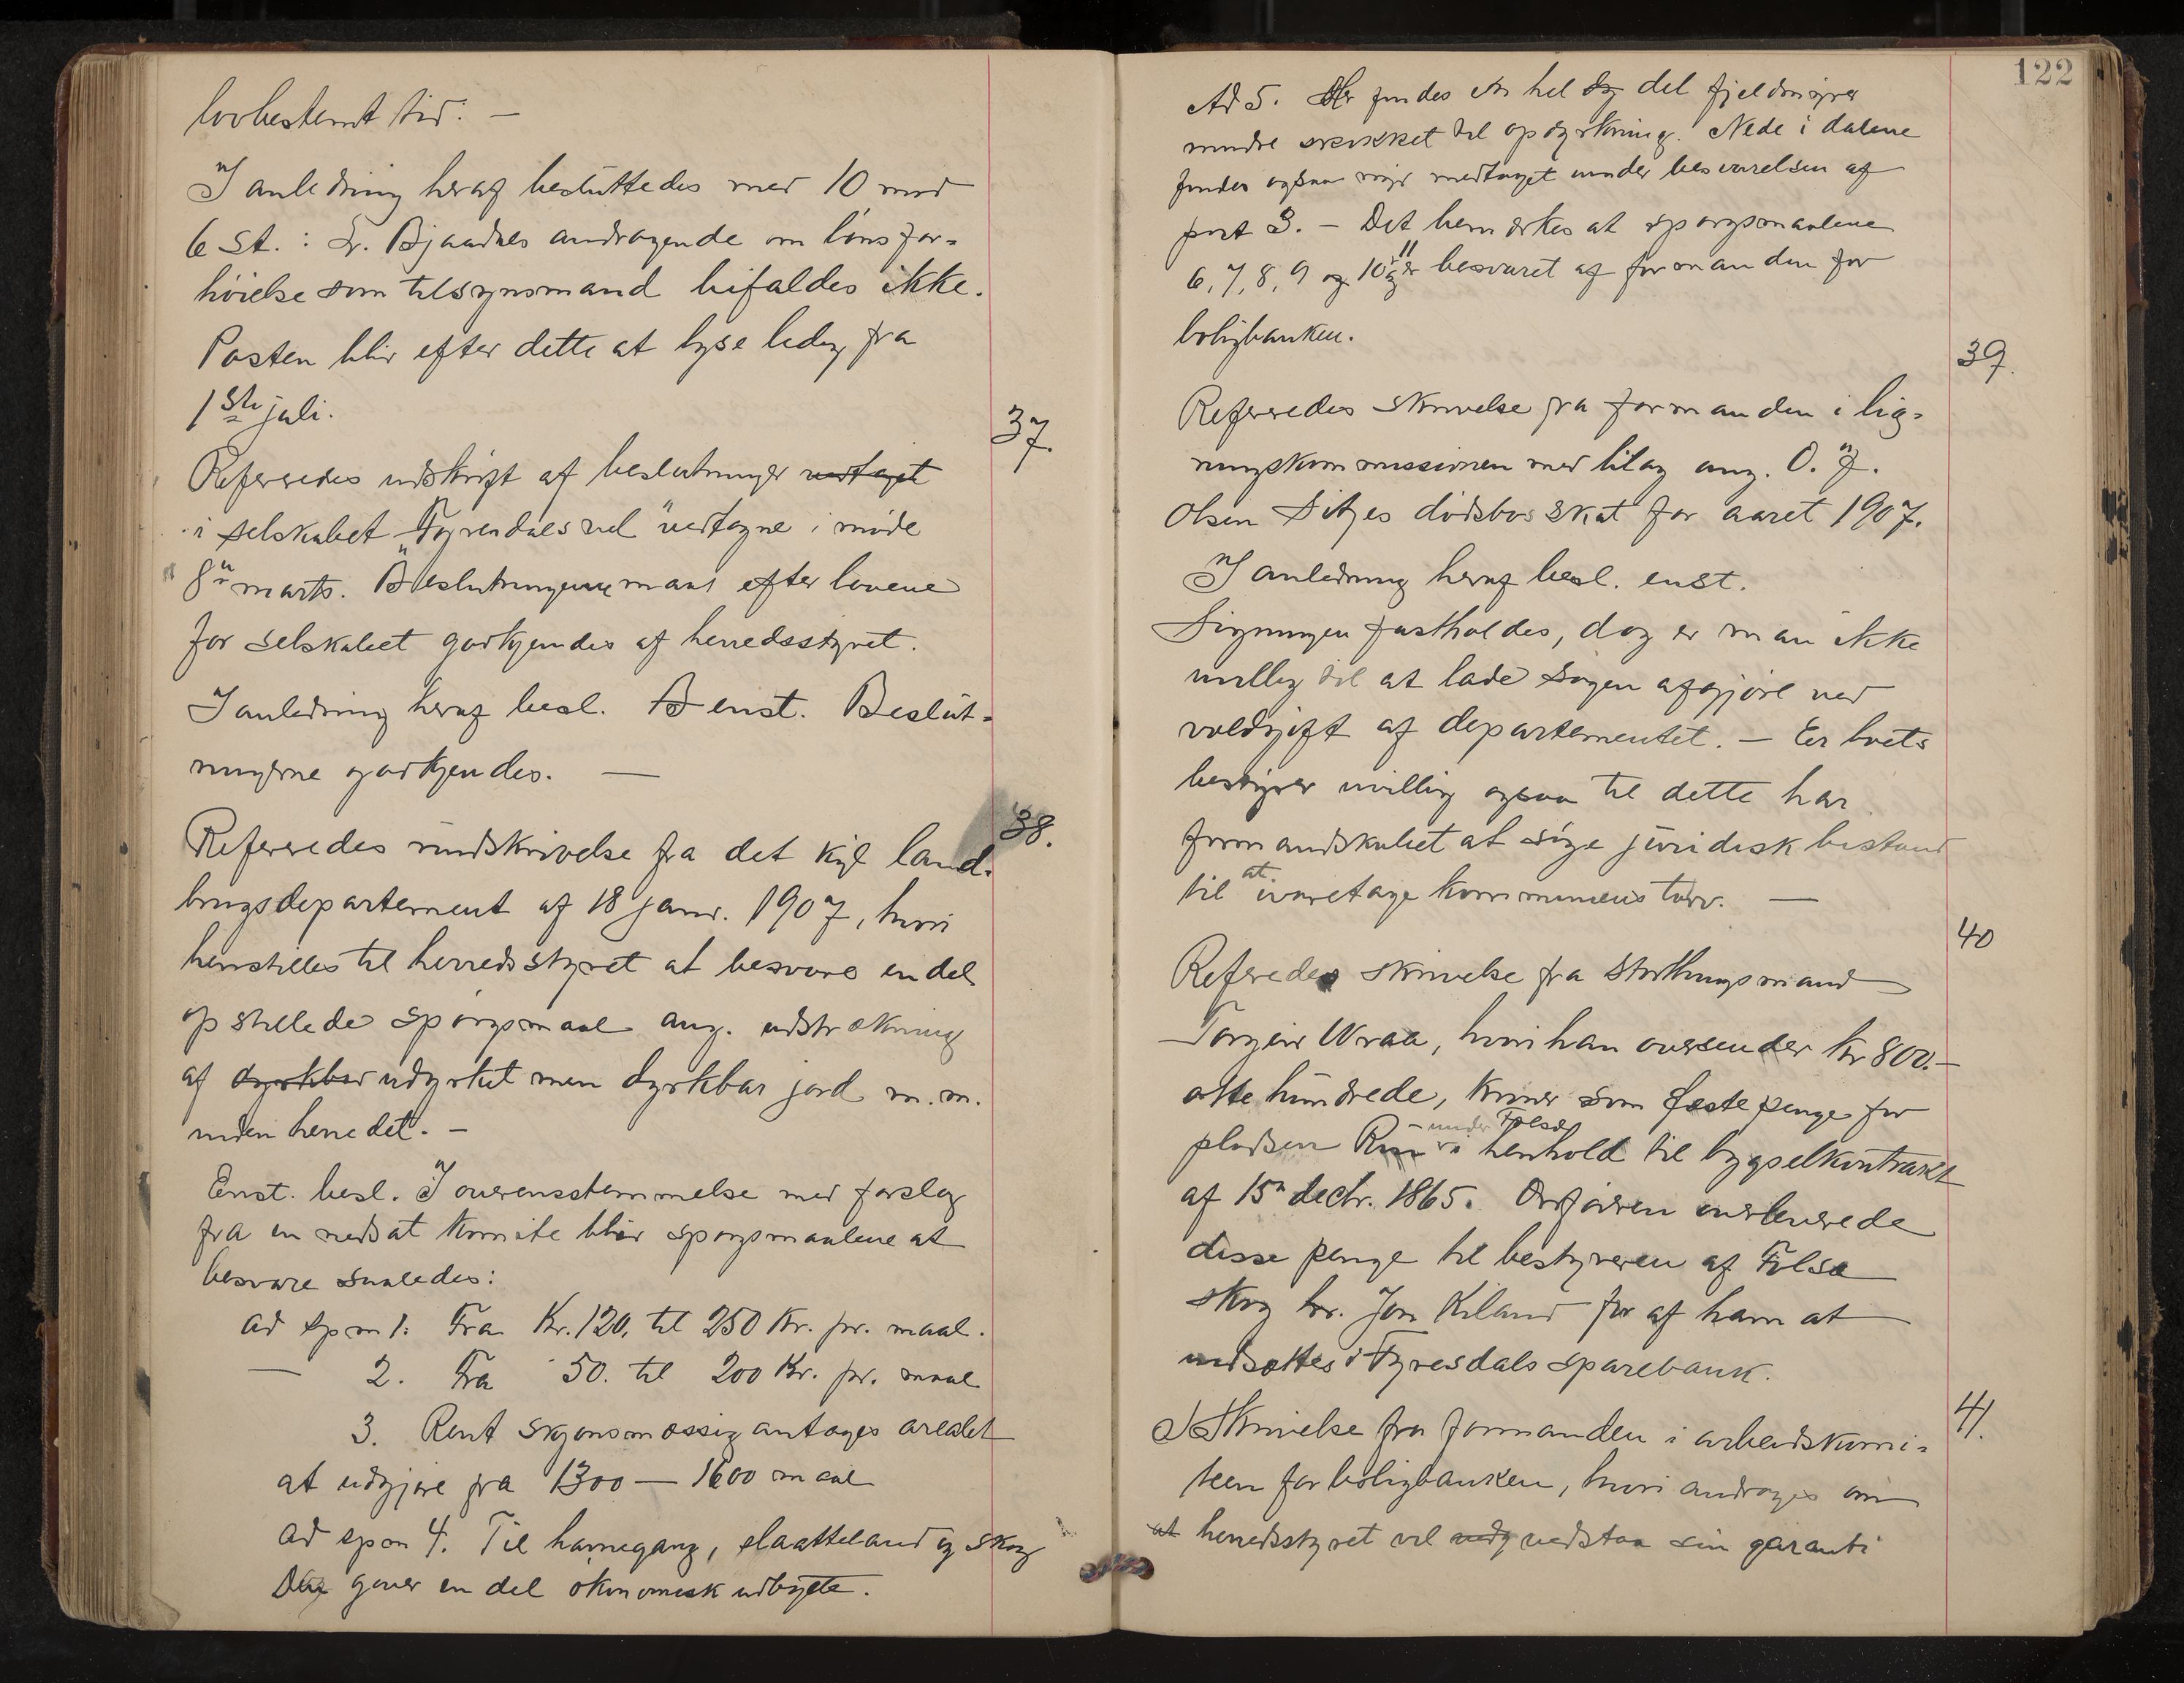 lovbestemt tid. —
I anledning heraf besluttedes med 10 mod
6 st.: Gr. Bjaadnes andragende om lönsfor-
höielse som tilsynsmand bifaldes ikke.
Posten blir efter dette at lyse ledig fra
1ste juli.
37.
Refereredes udskrift af beslutninger vedtaget
i selskabet "Fyresdals vel" vedtagne i möde
8de marts. Beslutningerne maa efter lovene
for selskabet godkjendes af herredsstyret.
I anledning heraf besl. enst. Beslut-
ningerne godkjendes. —
38.
Refereredes rundskrivelse fra det kgl land-
brugsdepartement af 18 janr. 1907, hvori
henstilles til herredsstyret at besvare endel
opstillede spörgsmaal ang. udstrækning
af dyrkbar udyrket men dyrkbar jord m.m.
inden herredet. —
Enst. besl. I overensstemmelse med forslag
fra en nedsat komite blir spörgsmaalene at
besvare saaledes:
ad spm 1: Fra Kr. 120, til 250 Kr. pr. maal.
— 2. Fra 50. til 200 Kr. pr. maal
3. Rent skjönsmæssig antages arealet
at udgjöre fra 1300 — 1600 maal
ad spm 4. Til havnegang, slaatteland og skog
Der giver en del ökonomisk udbytte.
122
Ad 5. Her findes en hel del fjeldmyrer
mindre skikket til opdyrkning. Nede i dalene
findes ogsaa myr medtaget under besvarelsen af
post 3. — Det bemærkes at spörgsmaalene
6, 7, 8, 9 og 10 og 11 er besvaret af formanden for
boligbanken.
39.
Refereredes skrivelse fra formanden i lig-
ningskommissionen med bilag ang. O. J.
Olsen Sitjes dödsbos skat for aaret 1907.
I anledning heraf besl. enst.
Ligningen fastholdes, dog er man ikke
uvillig til at lade sagen afgjöre ved
voldgift af departementet. — Er boets
bestyrer uvillig ogsaa til dette har
formandskabet at söge juridisk bistand
til at ivaretage kommunens tarv. —
40
Refereredes skrivelse fra storthingsmand
Torgeir Vraa, hvori han oversender kr 800.—
otte hundrede, kroner som festepenge for
pladsen under Folsæ i henhold til bygselkontrakt
af 15de decbr. 1865. Ordföreren overleverede
disse penge til bestyreren af Folsæ
skog hr. Jon Kiland for af ham at
indsættes i Fyresdals sparebank.
41.
I skrivelse fra formanden i arbeidskomi-
teen for boligbanken, hvori androges om
at herredsstyret vil vedstaa sin garanti